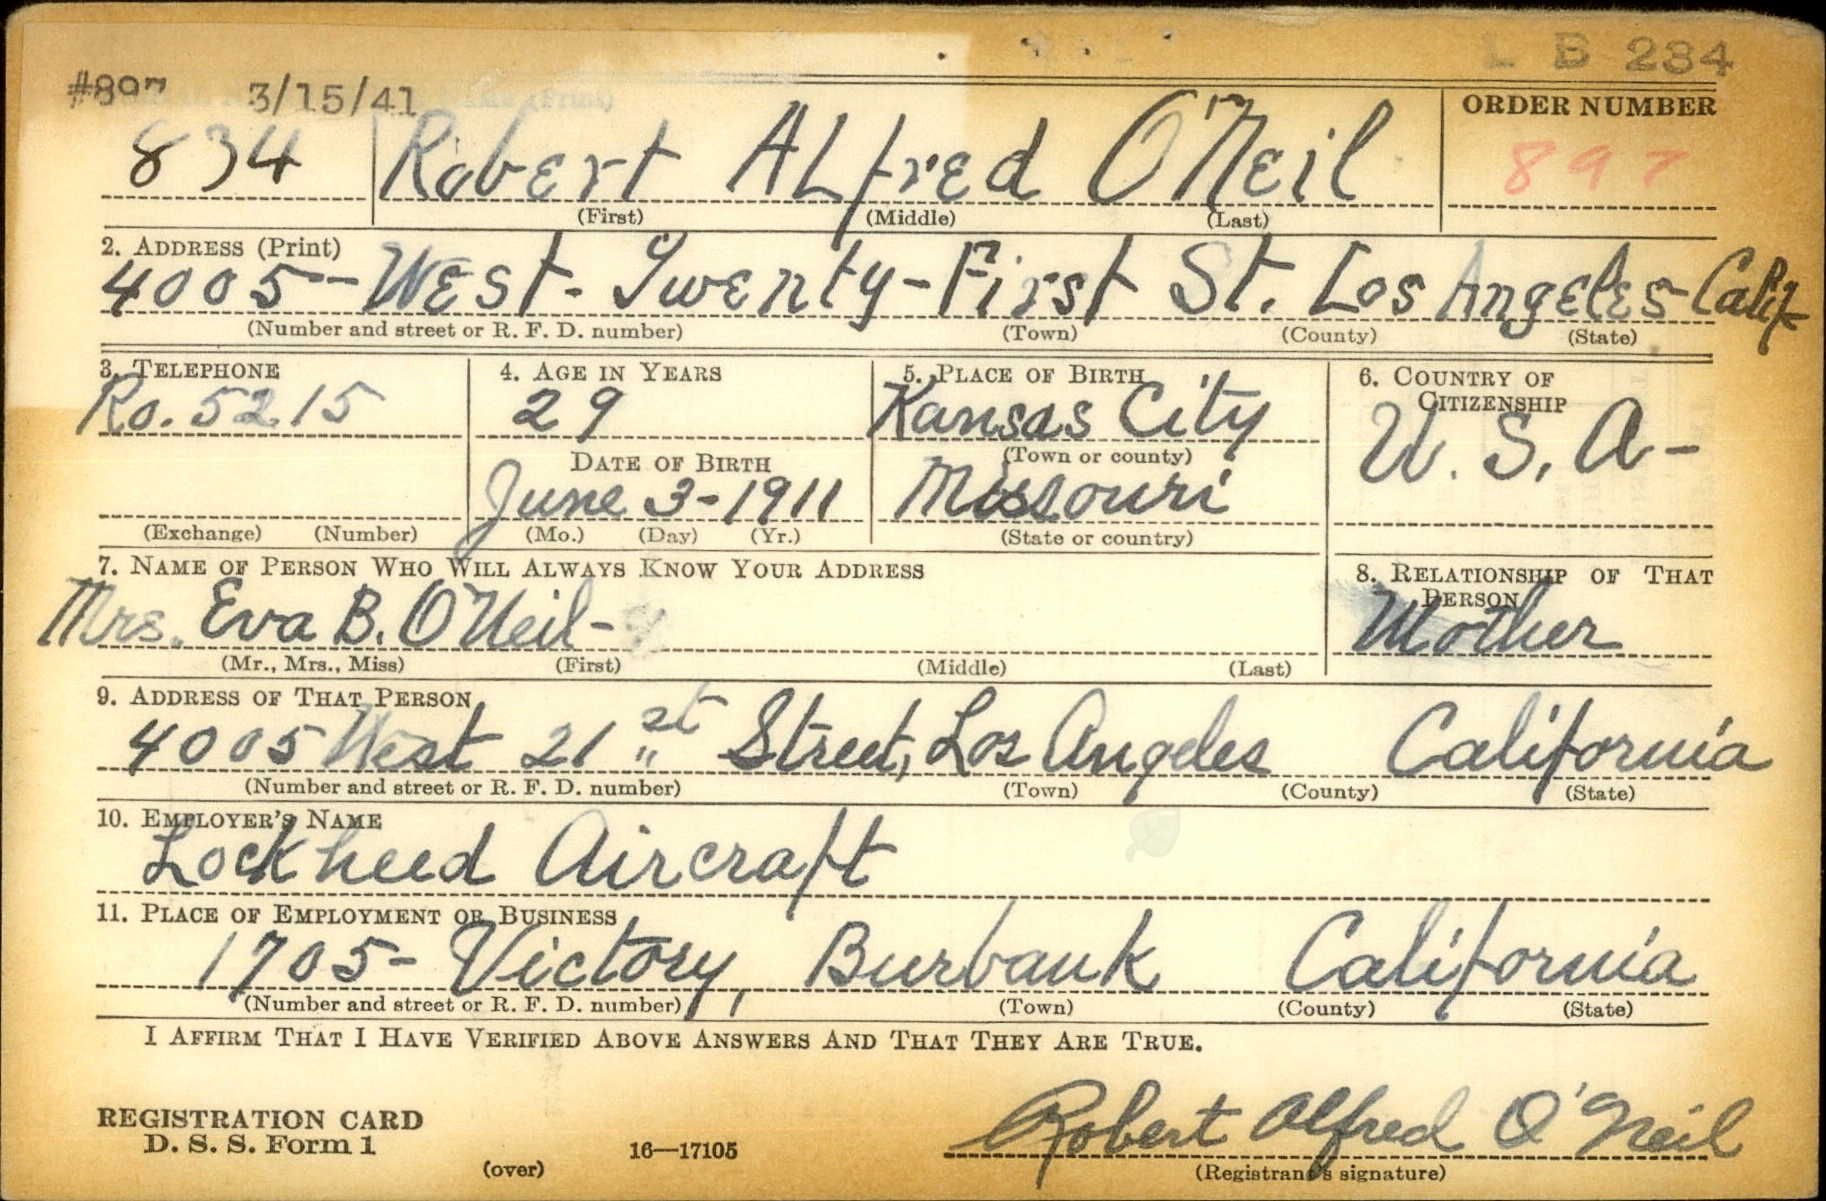 L B 284
#897 3/15/41
ORDER NUMBER
834 Robert Alfred O'Neil 897
(First) (Middle) (Last)
2. ADDRESS (Print)
4005-West-Twenty-First St. Los Angeles-Calif
(Number and street or R. F. D. number) (Town) (County) (State)
3. TELEPHONE 4. AGE IN YEARS 5. PLACE OF BIRTH 6. COUNTRY OF CITIZENSHIP
Ro. 5215 29 Kansas City U. S. A-
DATE OF BIRTH (Town or county)
June 3-1911 Missouri
(Exchange) (Number) (Mo.) (Day) (Yr.) (State or country)
7. NAME OF PERSON WHO WILL ALWAYS KNOW YOUR ADDRESS 8. RELATIONSHIP OF THAT PERSON
Mrs. Eva B. O'Neil- Mother
(Mr., Mrs., Miss) (First) (Middle) (Last)
9. ADDRESS OF THAT PERSON
4005 West 21st Street, Los Angeles California
(Number and street or R. F. D. number) (Town) (County) (State)
10. EMPLOYER'S NAME
Lockheed Aircraft
11. PLACE OF EMPLOYMENT OR BUSINESS
1705- Victory, Burbank California
(Number and street or R. F. D. number) (Town) (County) (State)
I AFFIRM THAT I HAVE VERIFIED ABOVE ANSWERS AND THAT THEY ARE TRUE.
REGISTRATION CARD
D. S. S. Form 1 16—17105 Robert Alfred O'Neil
(over) (Registrant's signature)